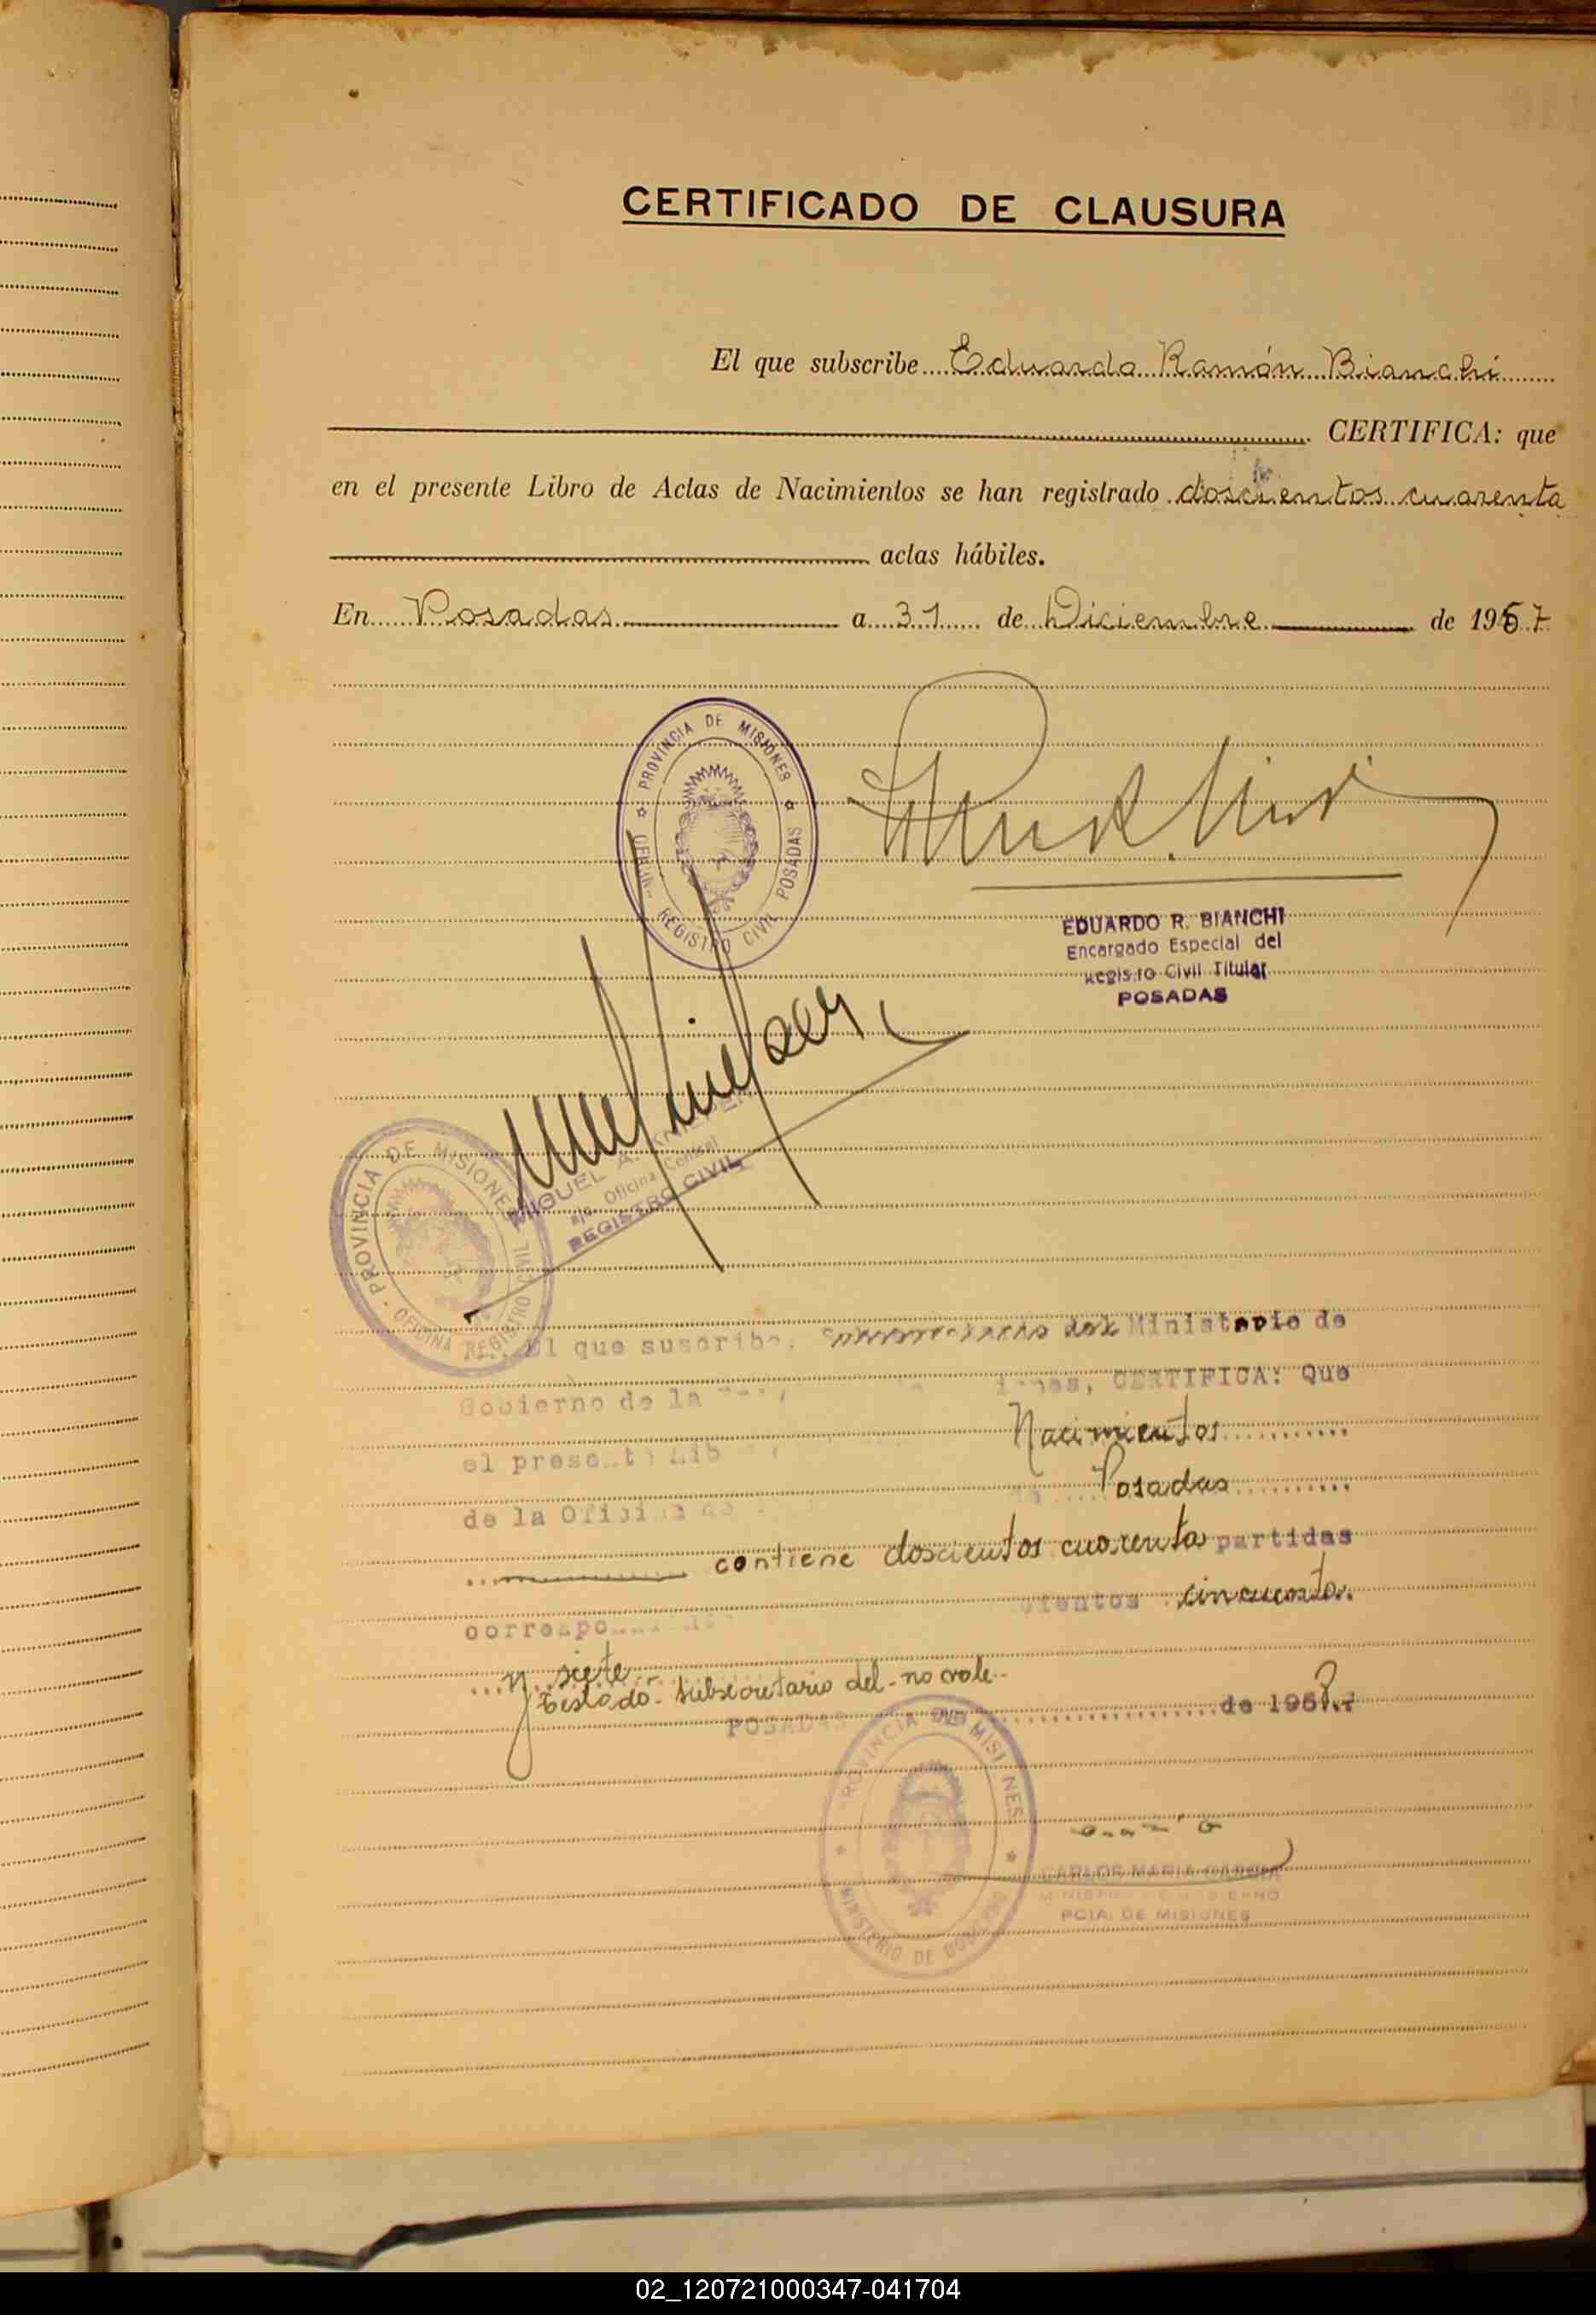 CERTIFICADO DE CLAUSURA
El que subscribe Eduardo Ramón Bianchi
CERTIFICA: que
en el presente Libro de Actas de Nacimientos se han registrado doscientos cuarenta
actas hábiles.
En Posadas a 31 de Diciembre de 1957
PROVINCIA DE MISIONES
REGISTRO CIVIL POSADAS
EDUARDO R. BIANCHI
Encargado Especial del
Registro Civil Titular
POSADAS
PROVINCIA DE MISIONES
OFICINA REGISTRO CIVIL
MIGUEL A.
a/c. Oficina Central
REGISTRO CIVIL
El que suscribe, Ministerio de
Gobierno de la CERTIFICA: Que
Nacimientos
el presente Lib
Posadas
de la Oficina de
contiene doscientos cuarenta partidas
cientos cincuenta
y siete
Testado - subsecretario del - no vale -
POSADAS de 1958
PROVINCIA DE MISIONES
MINISTERIO DE GOBIERNO
CARLOS MARIA GARCIA
MINISTRO DE GOBIERNO
PCIA. DE MISIONES
02_120721000347-041704